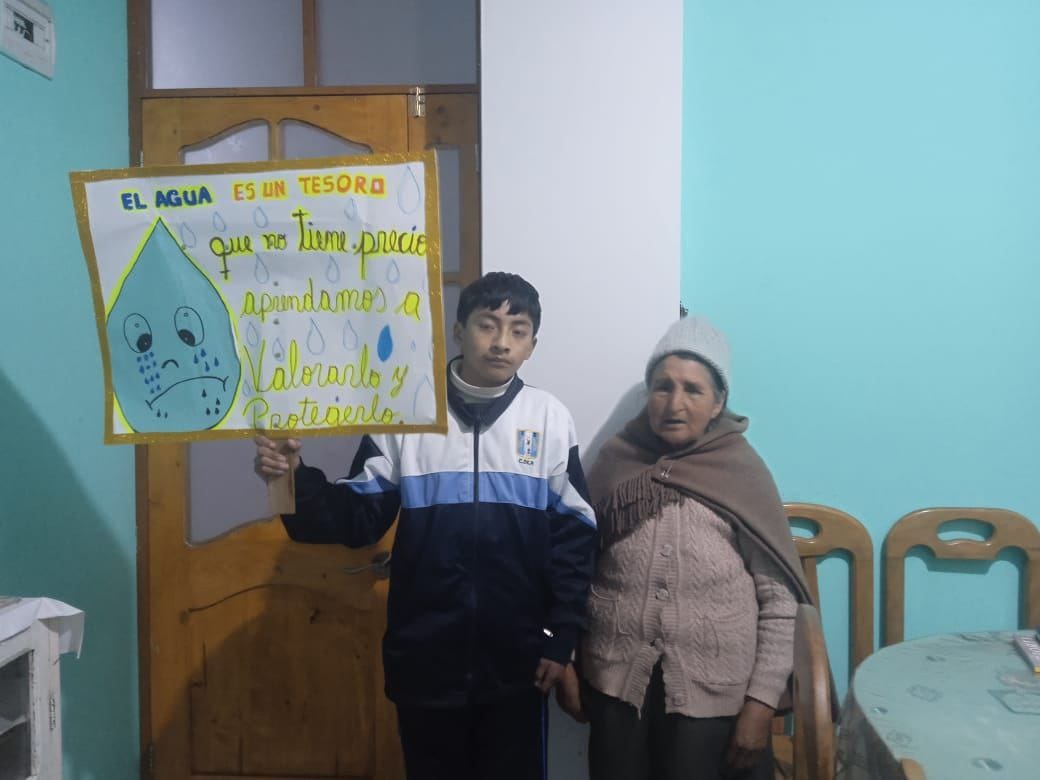 EL AGUA ES UN TESORO
que no tiene precio
aprendamos a
Valorarlo y
Protegerlo.